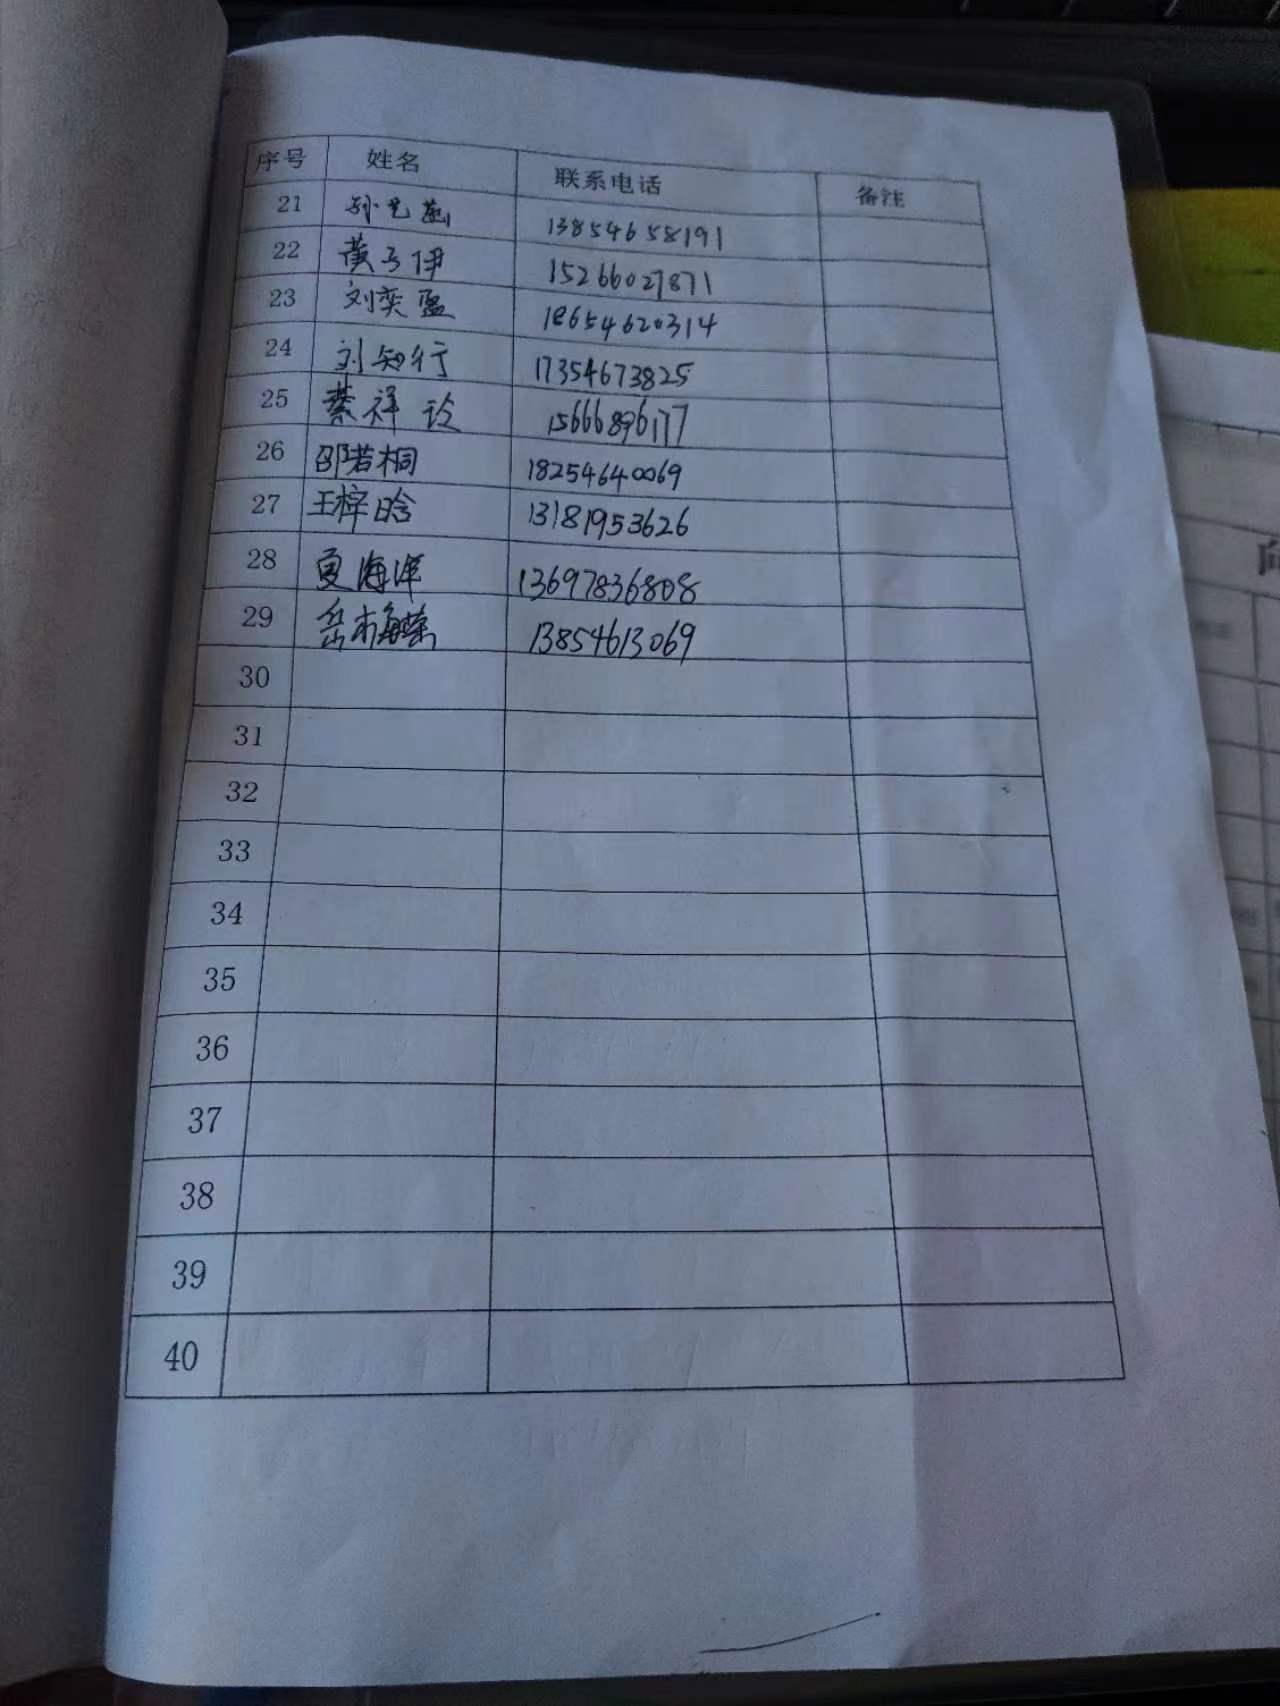 序号 姓名 联系电话 备注
21 孙艺菡 13854658191
22 黄子伊 15266027871
23 刘奕盈 18654620314
24 刘知行 17354673825
25 蔡祥 15666896177
26 邵若桐 18254640069
27 王梓晗 13181953626
28 夏海洋 13697836808
29 岳 13854613069
30
31
32
33
34
35
36
37
38
39
40